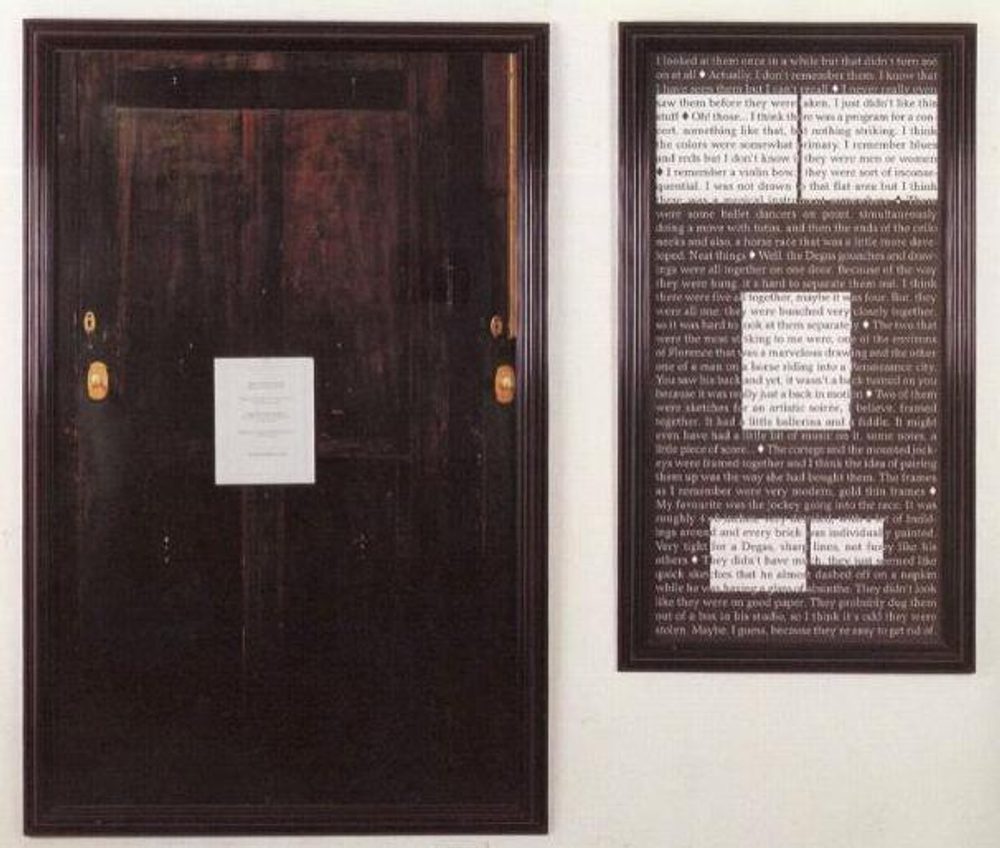 I looked at them once in a while but that didn't turn me
on at all ♦ Actually, I don't remember them. I know that
I have seen them but I can't recall ♦ I never really even
saw them before they were taken, I just didn't like this
stuff ♦ Oh! those... I think there was a program for a con-
cert, something like that, but nothing striking. I think
the colors were somewhat primary. I remember blues
and reds but I don't know if they were men or women
♦ I remember a violin bow. they were sort of inconse-
quential. I was not drawn to that flat area but I think
there was a musical
were some ballet dancers on point, simultaneously
doing a move with tutus, and then the ends of the cello
necks and also, a horse race that was a little more deve-
loped. Neat things ♦ Well, the Degas gouaches and draw-
ings were all together on one door. Because of the way
they were hung, it's hard to separate them out. I think
there were five all together, maybe it was four. But, they
were all one, they were bunched very closely together,
so it was hard to look at them separately ♦ The two that
were the most striking to me were, one of the environs
of Florence that was a marvelous drawing and the other
one of a man on a horse riding into a Renaissance city.
You saw his back and yet, it wasn't a back turned on you
because it was really just a back in motion ♦ Two of them
were sketches for an artistic soirée, I believe, framed
together. It had a little ballerina and a fiddle. It might
even have had a little bit of music on it, some notes, a
little piece of score... ♦ The cortege and the mounted jock-
eys were framed together and I think the idea of pairing
them up was the way she had bought them. The frames
as I remember were very modern, gold thin frames ♦
My favourite was the jockey going into the race. It was
roughly of build-
ings around and every brick was individually painted.
Very tight for a Degas, sharp lines, not fuzzy like his
others ♦ They didn't have much, they just seemed like
quick sketches that he almost dashed off on a napkin
while he was having a glass of absinthe. They didn't look
like they were on good paper. They probably dug them
out of a box in his studio, so I think it's odd they were
stolen. Maybe, I guess, because they're easy to get rid of.